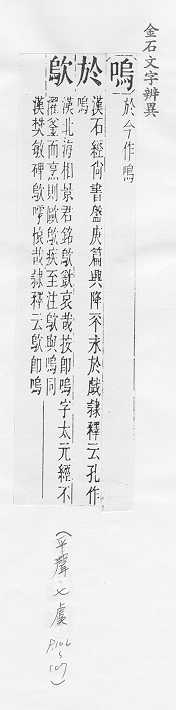 金石文字辨異
嗚
於今作嗚
於
漢石經尚書盤庚篇興降不永於戲隸釋云孔作
嗚
歍
漢北海相景君銘歍歔哀哉按即嗚字太元經不
濯釜而烹則歐歍疾至注歍與嗚同
漢樊敏碑歍呼懷哉隸釋云歍即嗚
(平聲七虞
P106
~
107)